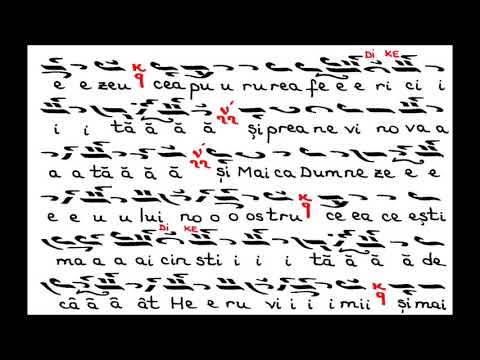 Di KE
e e zeu cea pu u ru rea fe e e ri ci i
i i tă ă ă ă și prea ne vi no va a
a a tă ă ă ă și Mai ca Dum ne ze e e
e e u u lui no o o ostru ce ea ce ești
Di KE
ma a a ai cin sti i i i tă ă ă ă de
câ â â ât He e ru vi i i mii și mai